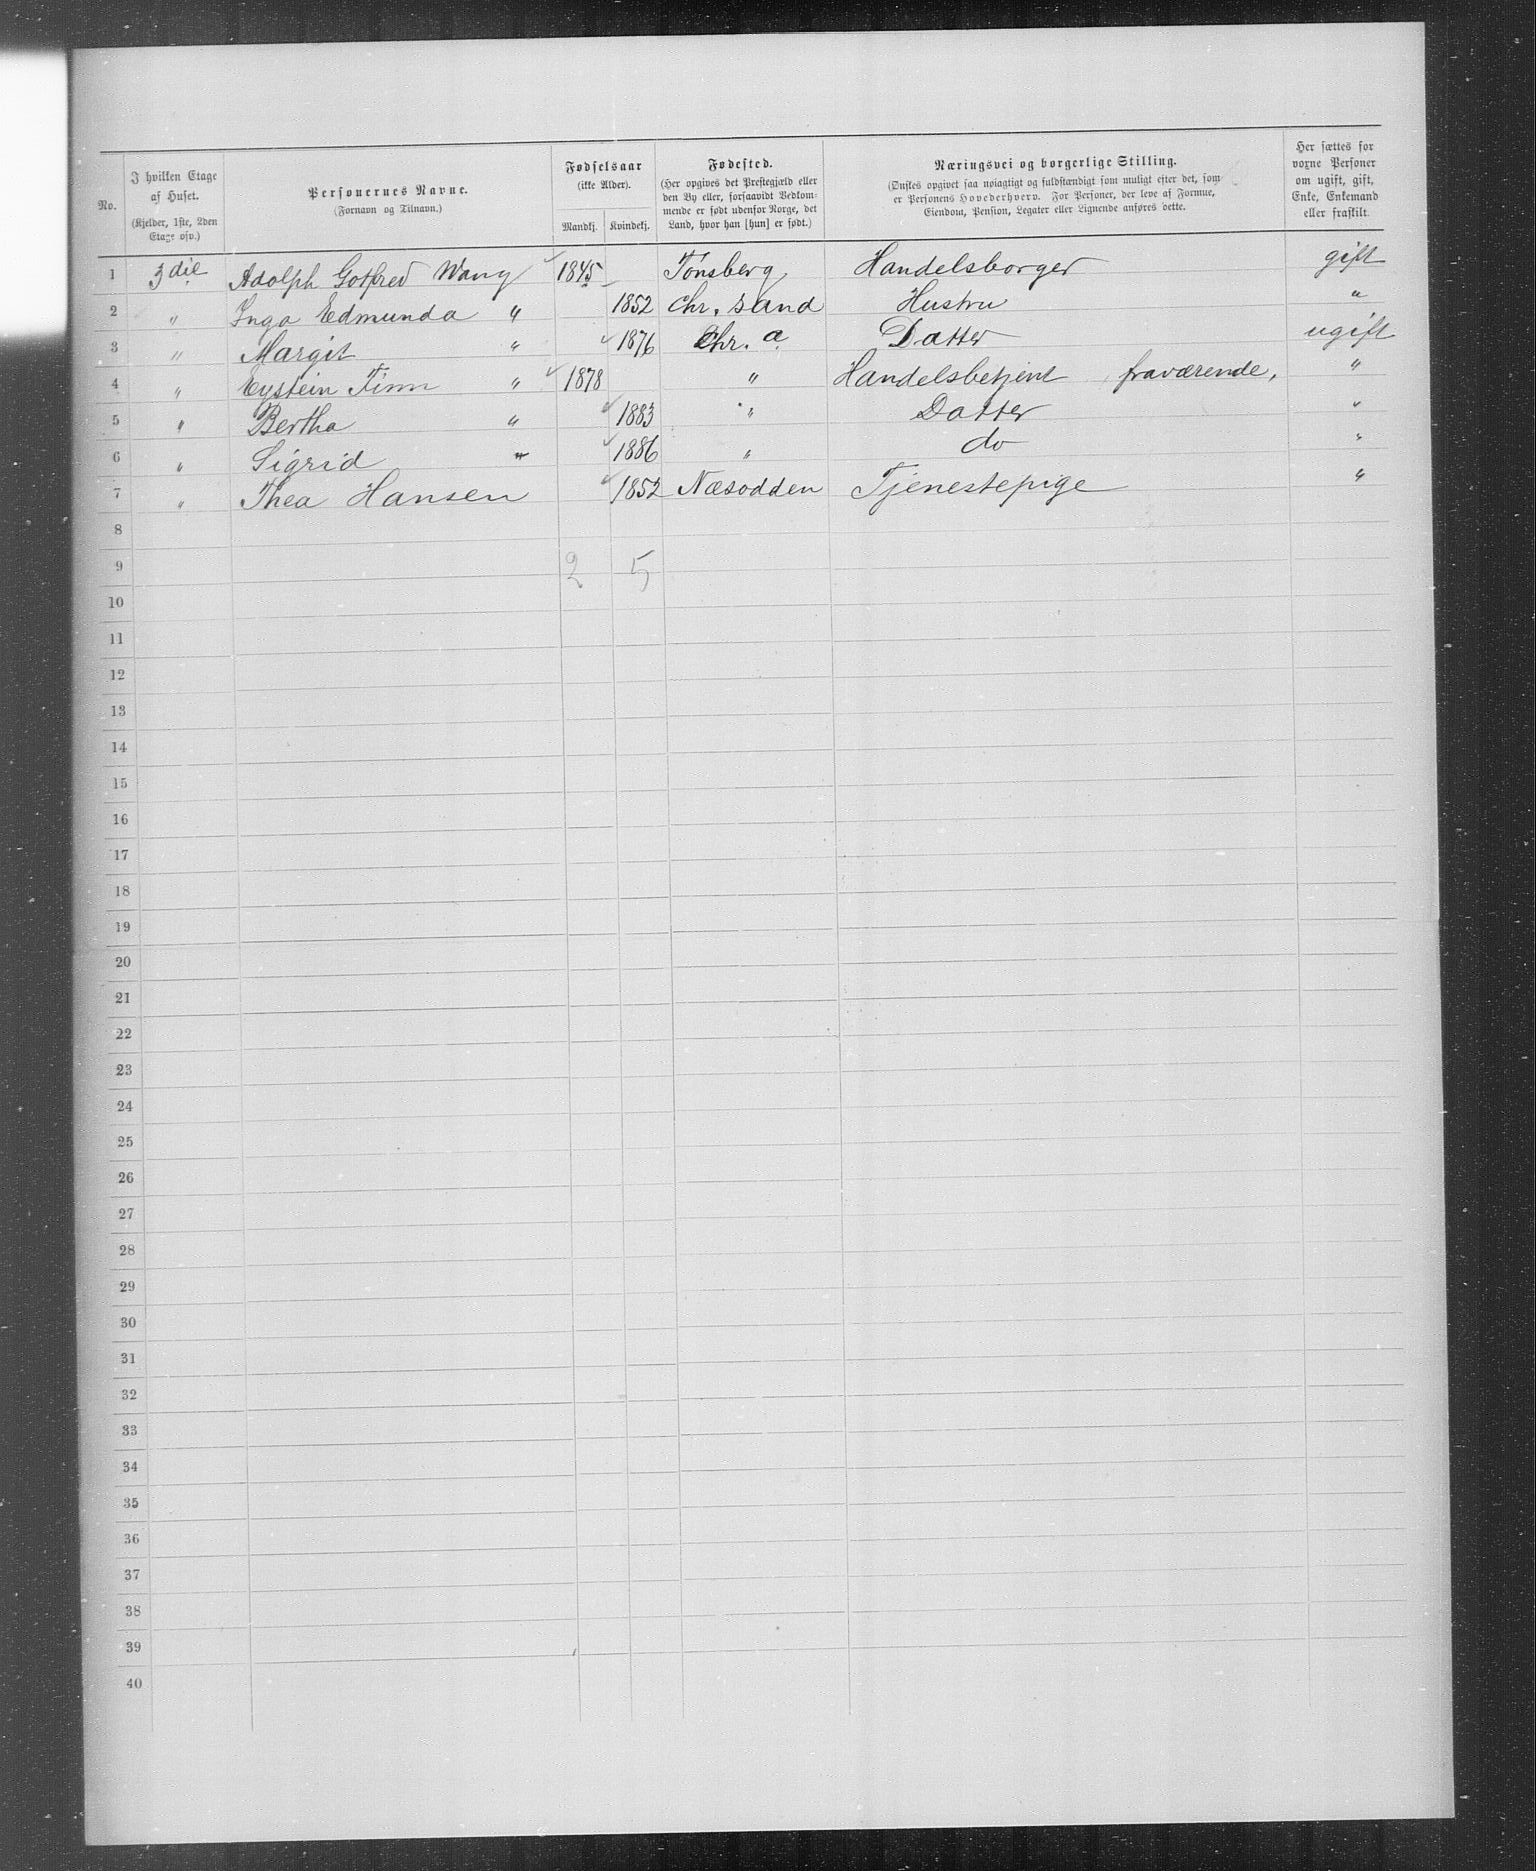 No.
I hvilken Etage af Huset.
(Kjelder, 1ste, 2den Etage osv.)
Personernes Navne.
(Fornavn og Tilnavn.)
Fødselsaar
(ikke Alder).
Mandkj. Kvindekj.
Fødested.
(Her opgives det Prestegjæld eller
den By eller, forsaavidt Vedkom-
mende er født udenfor Norge, det
Land, hvor han [hun] er født.)
Næringsvei og borgerlige Stilling.
(Ønskes opgivet saa nøiagtigt og fuldstændigt som muligt efter det, som
er Personens Hovederhverv. For Personer, der leve af Formue,
Eiendom, Pension, Legater eller Lignende anføres dette.
Her sættes for
voxne Personer
om ugift, gift,
Enke, Enkemand
eller fraskilt.
1 3die Adolph Gotfred Wang 1845 Tønsberg Handelsborger gift
2 " Inga Edmunda " 1852 Chr. sand Hustru "
3 " Margit " 1876 Chr. a Datter ugift
4 " Eystein Finn " 1878 " Handelsbetjent fraværende, "
5 " Bertha " 1883 " Datter "
6 " Sigrid " 1886 " do "
7 " Thea Hansen 1852 Næsodden Tjenestepige "
8
9 2 5
10
11
12
13
14
15
16
17
18
19
20
21
22
23
24
25
26
27
28
29
30
31
32
33
34
35
36
37
38
39
40